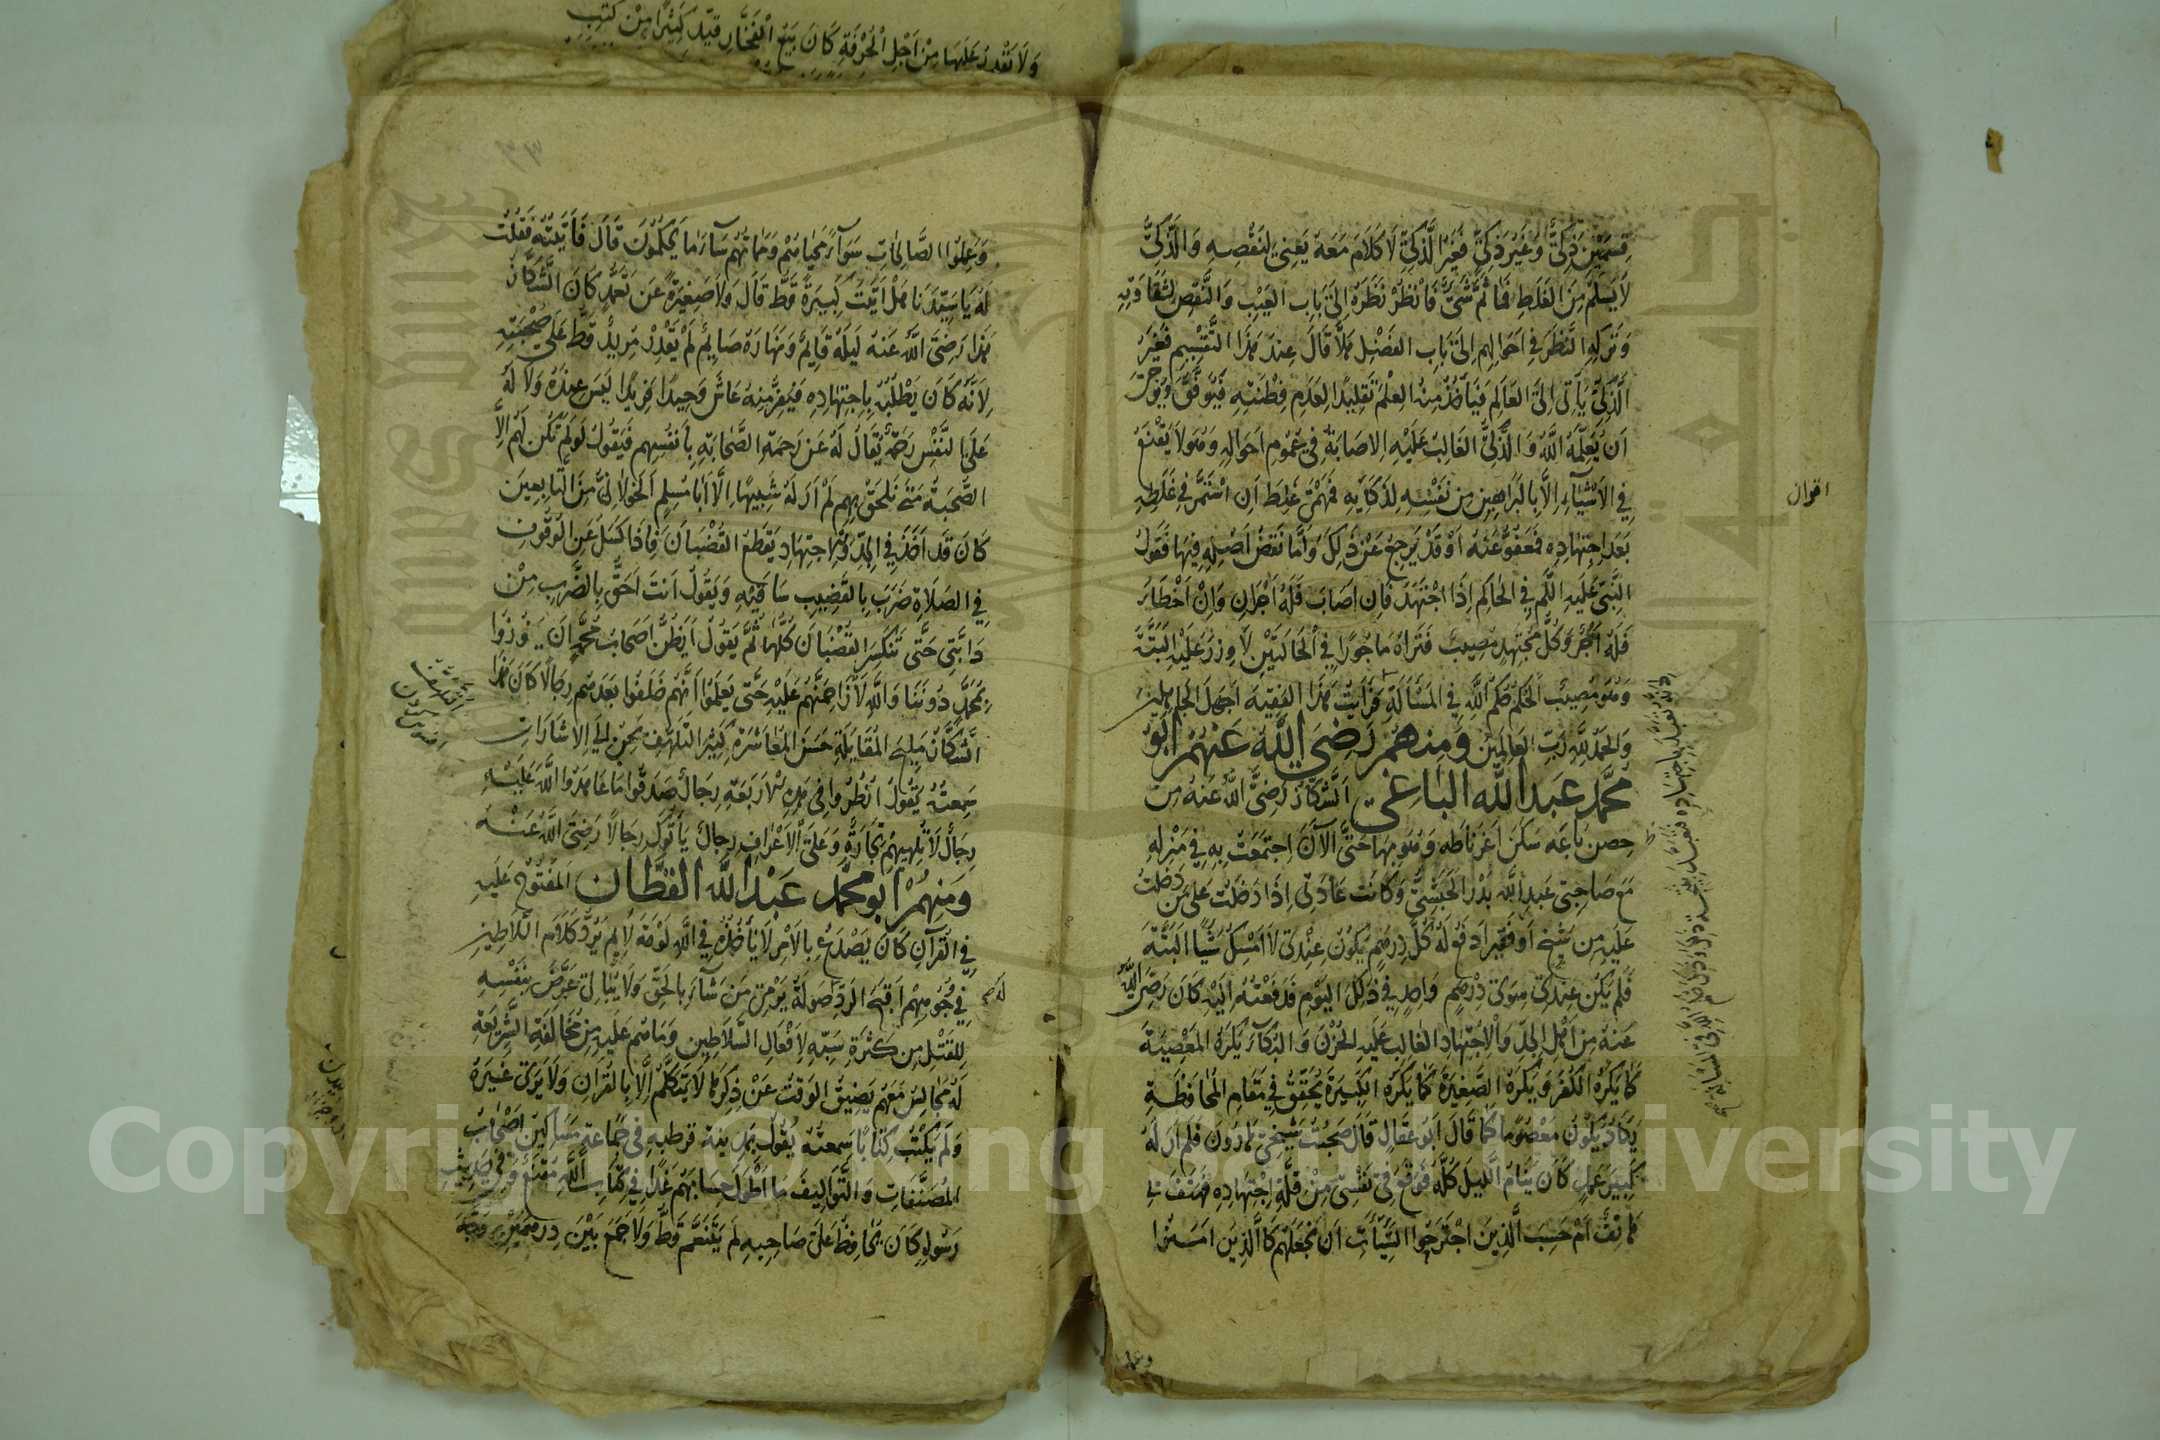 قِسمَيْنِ ذَكِيٌّ وَغَيْرُ ذَكِيٍّ فَغَيْرُ الذَّكِيِّ لَا كَلَامَ مَعَهُ يَعْنِي لِنَقْصِهِ وَالذَّكِيُّ
لَا يَسْلَمُ مِنَ الغَلَطِ فَمَا ثَمَّ شَيْءٌ فَانْظُرْ نَظَرَهُ اِلَى بَابِ العَيْبِ وَالنَّقْصِ لِشَقَاوَتِهِ
وَتَرْكِهِ النَّظَرَ فِي اَحْوَالِهِم اِلَى بَابِ الفَضْلِ هَلَّا قَالَ عِندَ هَذَا التَّقْسِيمِ فَغَيْرُ
الذَّكِيِّ يَأتِي اِلَى العَالِمِ فَيَأخُذُ مِنهُ العِلْمَ تَقلِيدًا لِعَدَمِ فِطْنَتِهِ فَيُوَفَّقُ وَيُرْجَى
اَن يُعَلِّمَهُ اللَّهُ وَالذَّكِيُّ الغَالِبُ عَلَيْهِ الاصَابَةُ فِي عُمُومِ اَحوَالِهِ وَهُوَ لَا يَقْنَعُ
فِي الاَشْيَآءِ اِلَّا بِالبَرَاهِينِ مِن نَفْسِهِ لِذَكَائِهِ فَمَهْمَى غَلِطَ اَنِ اسْتَمَرَّ فِي غَلَطِهِ
بَعدَ اِجتِهَادِهِ فَمَعْفُوٌّ عَنهُ اَوْ قَدْ يَرجِعُ عَنْ ذَلِكَ وَاَمَّا نَقصُ اَصْلِهِ فِيهَا فَقَولُ
النَّبِيِّ عَلَيهِ السَّلم فِي الحَاكِمِ اِذَا اجْتَهَدَ فَاِن اَصَابَ فَلَهُ اَجْرَانِ وَاِنْ اَخْطَأَ
فَلَهُ اَجْرٌ وَكُلُّ مُجتَهِدٍ مُصِيبٌ فَتَرَاهُ مَاجُورًا فِي الحَالَتَيْنِ لَا وِزْرَ عَلَيْهِ البَتَّةَ
وَهُوَ مُصِيبٌ الحُكْمُ حُكْمُ اللَّهِ فِي المَسْأَلَةِ فَرَأَيتُ هَذَا الفَقِيهَ اَجهَلَ الجَاهِلِينَ
وَالحَمدُ لِلَّهِ رَبِّ العَالَمِينَ وَمِنهُم رَضِيَ اللَّهُ عَنهُم ابُو
مُحَمَّد عَبدُ اللَّه البَاغِي الشَّكَّازُ رَضِيَ اللَّهُ عَنهُ مِن
حِصنِ بَاغِه سَكَنَ اَغَرنَاطَه وَهُوَ بِهَا حَتَّى الآنَ اِجتَمَعتُ بِهِ فِي مَنْزِلِهِ
مَعَ صَاحِبِي عَبدِ اللَّه بَدْرٍ الحَبَشِيِّ وَكَانَت عَادَتِي اِذَا دَخَلْتُ عَلَى مَن دَخَلتُ
عَلَيهِ مِن شَيْخٍ اَو فَقِيرٍ اَدفَعُ لَهُ كُلَّ دِرهَمٍ يَكُونُ عِنْدِي لَا اَمْسِكُ شَيًّا البَتَّةَ
فَلَم يَكُن عِندِي سِوَى دِرْهَمٍ وَاحِدٍ فِي ذَلِكَ اليَومِ فَدَفَعْتُهُ اِلَيهِ كَانَ رَضِيَ اللَّهُ
عَنهُ مِن اَهْلِ الجِدِّ وَالاِجْتِهَادِ الغَالِبُ عَلَيهِ الحُزْنُ وَالبُكَآءُ يَكرَهُ المَعْصِيَةَ
كَمَا يَكرَهُ الكُفْرَ وَيَكرَهُ الصَّغِيرَةَ كَمَا يَكرَهُ الكَبِيرَةَ يُحَقِّقُ فِي مَقَامِ المُحَافَظَةِ
يَكَادُ يَكُونُ مَعْصُومًا كَمَا قَالَ اَبُو عَقَالٍ قَالَ صَحِبتُ شَيْخِي هَارُونَ فَلَم اَرَ لَهُ
كَبِيرَ عَمَلٍ كَانَ يَنَامُ اللَّيلَ كُلَّهُ فَوَقَعَ فِي نَفْسِي مِنْ قِلَّةِ اِجتِهَادِهِ فَهَتَفَ بِي
هَاتِفٌ اَمْ حَسِبَ الَّذِينَ اجْتَرَحُوا السَّيِّآتِ اَن نَجعَلَهُم كَالَّذِينَ امَنُوا
وعملوا
اقران
وَعَمِلُوا الصَّالِحَاتِ سَوَآءً مَحيَاهُم وَمَمَاتُهُم سَآءَ مَا يَحكُمُونَ قَالَ فَاَتَيتُهُ فَقُلتُ
لَهُ يَا سَيِّدَنَا هَل اَتَيْتَ كَبِيرَةً قَطُّ قَالَ وَلَا صَغِيرَةً عَن تَعَمُّدٍ كَانَ الشَّكَّازُ
هَذَا رَضِيَ اللَّهُ عَنهُ لَيلُهُ قَايِمٌ وَنَهَارُهُ صَايِمٌ لَم يَقْدِرْ مُرِيدٌ قَطُّ عَلَى صُحْبَتِهِ
لِاَنَّهُ كَانَ يَطْلُبُهُ بِاِجتِهَادِهِ فَيَفِرُّ مِنهُ عَاشَ وَحِيدًا فَرِيدًا لَيسَ عِندَهُ وَلَا لَهُ
عَلَى النَّفْسِ رَحمَةٌ يُقَالُ لَهُ عَن رَحمَةِ الصَّحَابَةِ بِاَنفُسِهِم فَيَقُولُ لَو لَم تَكُن لَهُم اِلَّا
الصُّحبَةُ مَتَى نَلحَقُ بِهِم لَم اَرَ لَهُ شَبِيهًا اِلَّا اَبَا مُسلِمٍ الخَولَانِيَّ مِنَ التَّابِعِينَ
كَانَ قَد اَخَذَ فِي الجِدِّ وَالاِجتِهَادِ يَقطَعُ القُضْبَانَ فَاِذَا كَسَلَ عَنِ الوُقُوفِ
فِي الصَلَاةِ ضَرَبَ بِالقَضِيبِ سَاقَيهِ وَيَقُولُ اَنتَ اَحَقُّ بِالضَّربِ مِنْ
دَابَّتِي حَتَّى تَنكَسِرَ القُضْبَانُ كُلُّهَا ثُمَّ يَقُولُ اَيَظُنُّ اَصحَابُ مُحَمَّدٍ اَن يَفُوزُوا
بِمُحَمَّدٍ دُونَنَا وَاللَّهِ لَاُزَاحِمَنَّهُم عَلَيهِ حَتَّى يَعلَمُوا اَنَّهُم خَلَفُوا بَعدَهُم رِجَالًا كَانَ هَذَا
الشَّكَّازُ مَلِيحَ المُقَابَلَةِ حَسَنَ المُعَاشَرَةِ كَثِيرَ التَّلَهُّفِ يَحِنُّ اِلَى الاِشَارَاتِ
سَمِعتُهُ يَقُولُ انظُرُوا فِي هَذِهِ الاَربَعَةِ رِجَالٌ صَدَقُوا مَا عَاهَدُوا اللَّهَ عَلَيْهِ
رِجَالٌ لَا تُلهِيهِم تِجَارَةٌ وَعَلَى الاَعْرَافِ رِجَالٌ يَأتُوكَ رِجَالًا رَضِيَ اللَّهُ عَنهُ
وَمِنهُم ابُو مُحَمَّد عَبْدُ اللَّه القَطَّان المَفتُوحُ عَلَيهِ
فِي القُرآنِ كَانَ يَصْدَعُ بِالاَمْرِ لَا يَأخُذُهُ فِي اللَّهِ لَومَةُ لَايِمٍ يَرُدُّ كَلَامَ السَّلَاطِينِ
فِي وُجُوهِهِم اَقبَحَ الرَّدِّ صَولَةً يَرمِي مَن شَآءَ بِالحَقِّ وَلَا يُبَالِي عَرَّضَ بِنَفْسِهِ
لِلقَتْلِ مِن كَثرَةِ سَبِّهِ لِاَفعَالِ السَّلَاطِينِ وَمَا هُم عَلَيهِ مِن مُخَالَفَةِ الشَّرِيعَةِ
لَهُ مَجَالِسُ مَعَهُم يَضِيقُ الوَقتُ عَنْ ذِكرِهَا لَا يَتَكَلَّمُ اِلَّا بِالقُرآنِ وَلَا يَرَى غَيرَهُ
وَلَم يَكتُب كِتَابًا سَمِعتُهُ يَقُولُ بِمَدِينَةِ قُرطُبَه فِي جَمَاعَةٍ مَسَاكِينُ اَصْحَابُ
المُصَنَّفَاتِ وَالتَّوَالِيفِ مَا اَطوَلَ حِسَابَهُم غَدًا فِي كِتَابِ اللَّهِ مَقنَعٌ وَفِي حَدِيثِ
رَسُولِهِ كَانَ يُحَافِظُ عَلَى صَاحِبِهِ لَم يَتَنَعَّم قَطُّ وَلَا جَمَعَ بَيْنَ دِرهَمَيْنِ
وَلَا تَقْدِرُ عَلَيهَا مِنْ اَجْلِ الحُرفَةِ كَانَ يَبِيعُ الفَخَّارَ قَيَّدَ كَثِيرًا مِنْ كُتُبِ
Copyright © King Saud University